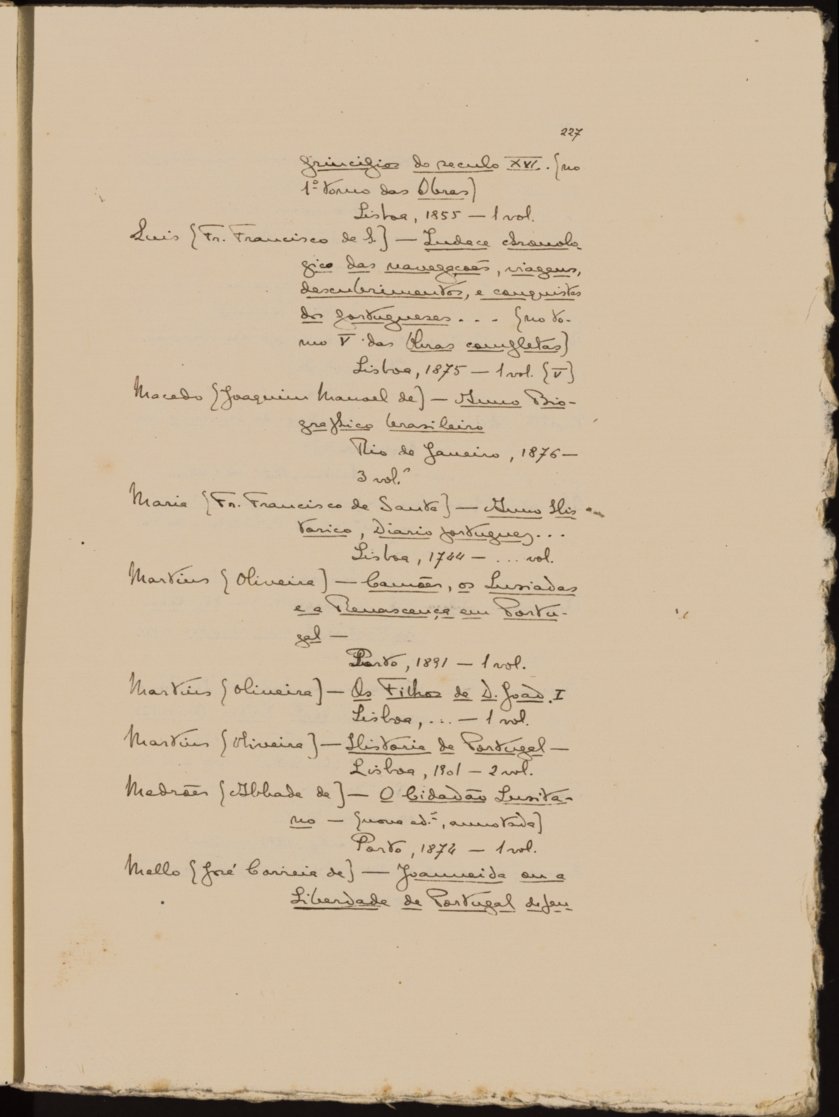 227
principios do seculo XVI. (no
1º tomo das Obras)
Lisboa, 1855 — 1 vol.
Luis (Fr. Francisco de S.) — Indece chronolo-
gico das navegações, viagens,
descubrimentos, e conquistas
dos portugueses... (no to-
mo V das Obras completas)
Lisboa, 1875 — 1 vol. (V)
Macedo (Joaquim Manoel de) — Anno Bio-
graphico brasileiro
Rio de Janeiro, 1876 —
3 vol.ˢ
Maria (Fr. Francisco de Santa) — Anno His-
torico, Diario portuguez...
Lisboa, 1744 — ... vol.
Martins (Oliveira) — Camões, os Lusiadas
e a Renascença em Portu-
gal —
Porto, 1891 — 1 vol.
Martins (Oliveira) — Os Filhos de D. João I
Lisboa, ... — 1 vol.
Martins (Oliveira) — Historia de Portugal —
Lisboa, 1901 — 2 vol.
Medrões (Abbade de) — O Cidadão Lusita-
no — (nova ed.ᵃ, annotada)
Porto, 1872 — 1 vol.
Mello (José Correia de) — Joanneida ou a
Liberdade de Portugal defen